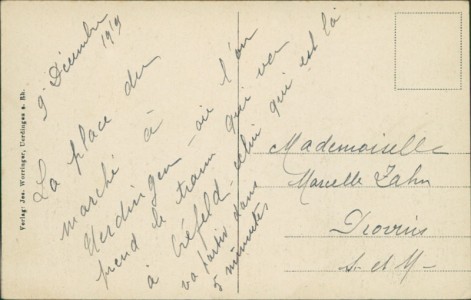 Verlag: Jos. Worringer, Uerdingen a. Rh.
9 Décembre
1919
La place du
marché à
Uerdingen - où l'on
prend le tram qui va
à Créfeld - celui qui est là
va partir dans
5 minutes
Mademoiselle
Marcelle Zahn
Provins
S. et M.